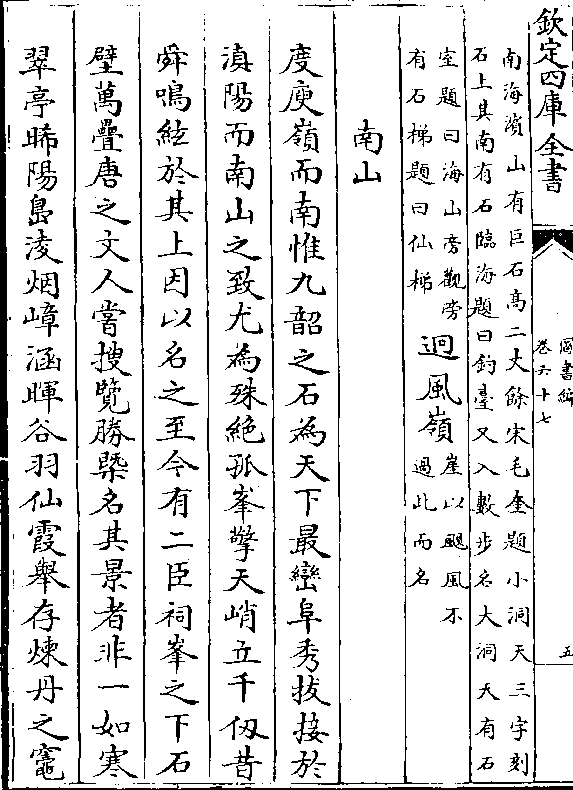 欽定四庫全書
圖書編
卷六十七
五
南海濱山有巨石高二丈餘宋毛奎題小洞天三字刻
石上其南有石臨海題曰釣臺又入數步名大洞天有石
室題曰海山旁觀旁
有石梯題曰仙梯
迥風嶺
崖以颶風不
過此而名
南山
度庾嶺而南惟九韶之石為天下最巒阜秀拔接於
滇陽而南山之致尤為殊絶孤峯擎天峭立千仭昔
舜鳴絃於其上因以名之至今有二臣祠峯之下石
壁萬疊唐之文人嘗搜覽勝槩名其景者非一如寒
翠亭晞陽島淩烟嶂涵暉谷羽仙霞舉存煉丹之竈